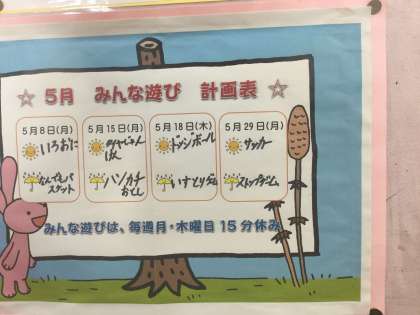 ☆ 5月 みんな遊び 計画表 ☆
5月8日(月) 5月15日(月) 5月18日(木) 5月29日(月)
いろおに ドッジボール サッカー
なんでもバスケット ハンカチおとし いすとりゲーム ストップゲーム
みんな遊びは、毎週月・木曜日 15分休み